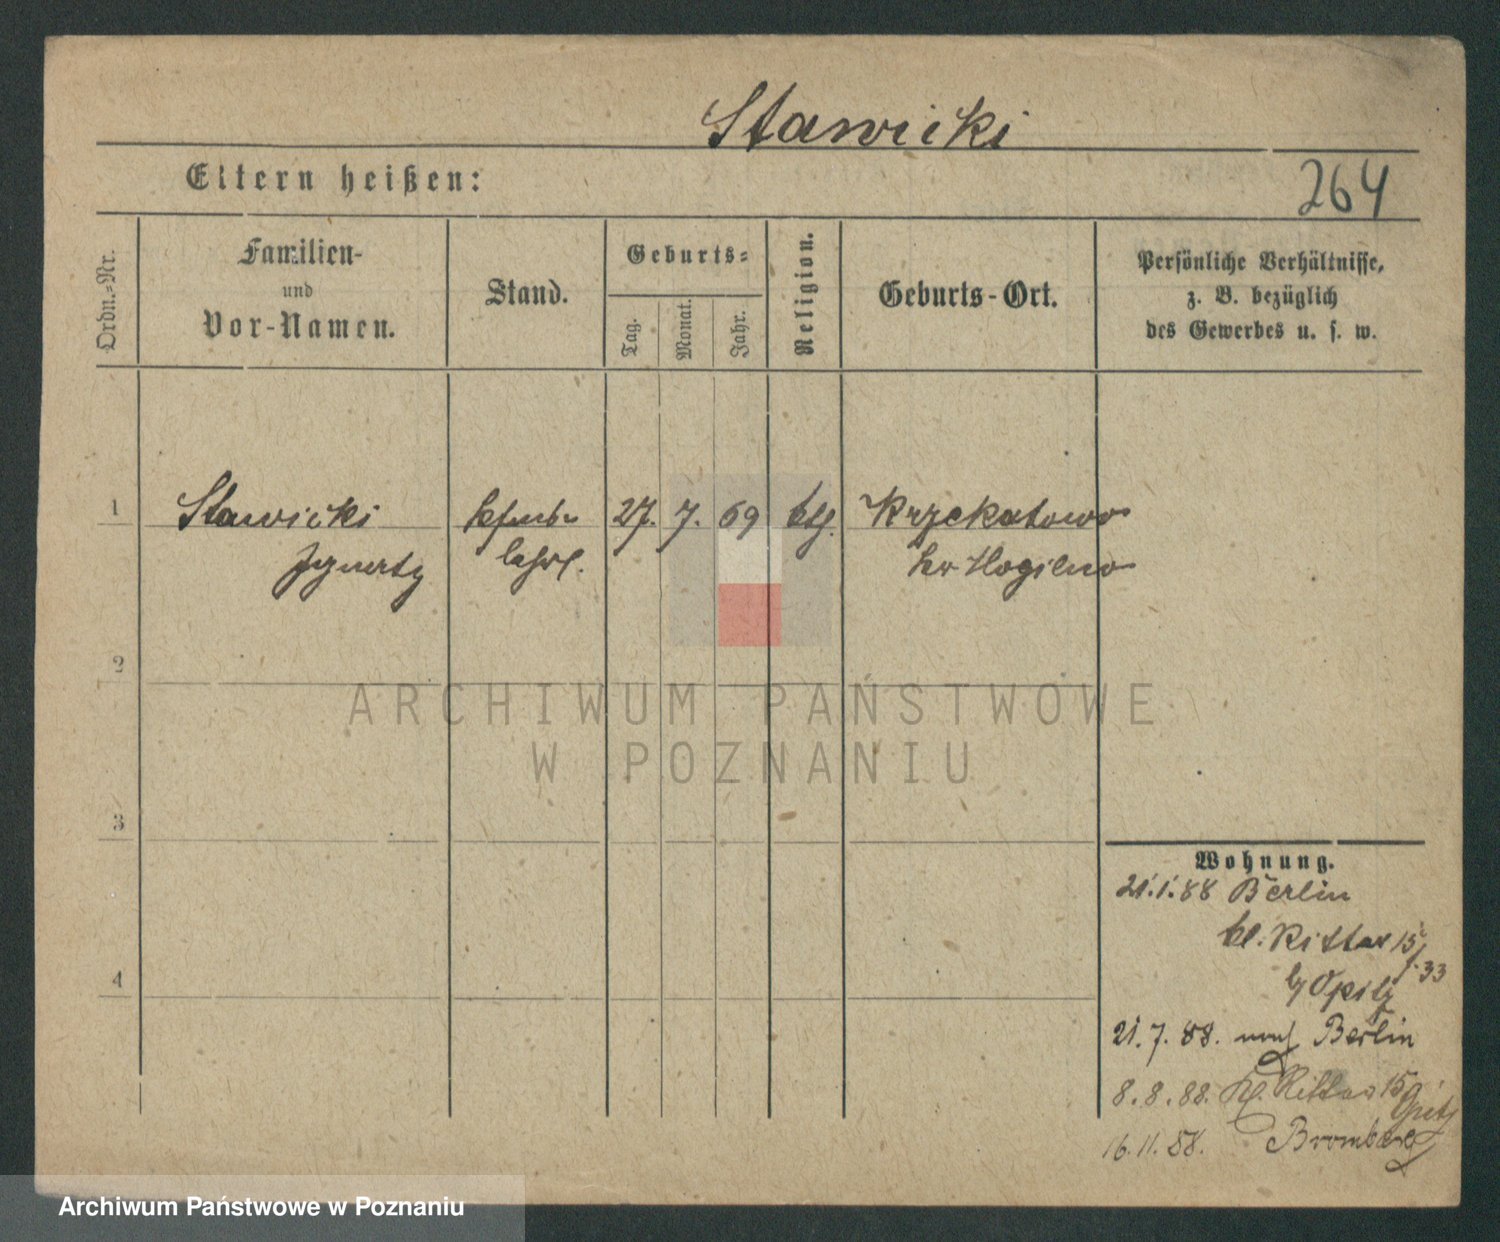 Stawicki
Eltern heißen:
264
Ordn.-Nr.
Familien-
und
Vor-Namen.
Stand.
Geburts-
Tag.
Monat.
Jahr.
Religion.
Geburts-Ort.
Persönliche Verhältnisse,
z. B. bezüglich
des Gewerbes u. s. w.
1
Stawicki
27. 7. 69
ktl.
Ignatz
lehrl.
Kr Mogilno
2
ARCHIWUM PAŃSTWOWE
W POZNANIU
3
Wohnung.
21.1.88 Berlin
kl. Ritter 15
33
b/ Opitz
4
21.7.88. nach Berlin
8.8.88. kl. Ritter 15 Opitz
16.11.88. Bromberg
Archiwum Państwowe w Poznaniu